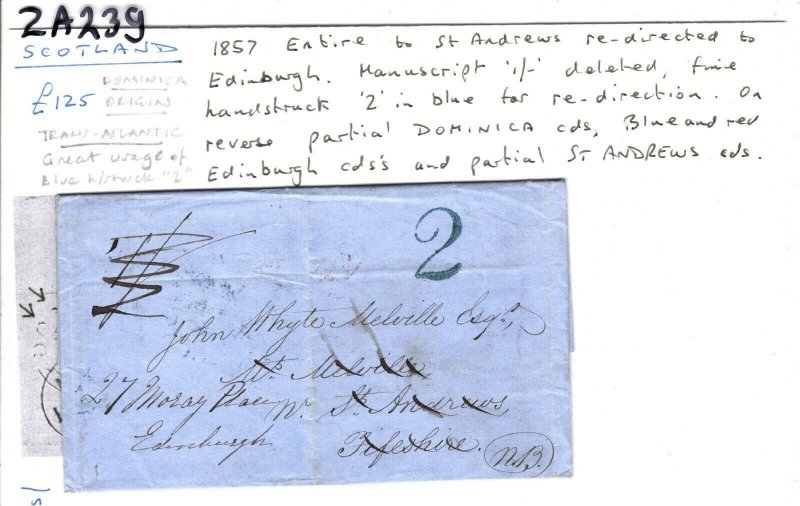 ZA239
SCOTLAND
£125
DOMINICA
ORIGINS
TRANS-ATLANTIC
Great usage of
blue h/struck "2"
1857 Entire to St Andrews re-directed to
Edinburgh. Manuscript '1/-' deleted, fine
handstruck '2' in blue for re-direction. On
reverse partial DOMINICA cds, Blue and red
Edinburgh cds's and partial ST ANDREWS cds.
2
John Whyte Melville Esqr,
Mt Melville,
27 Moray Place Nr St Andrews,
Edinburgh Fifeshire.
N.B.